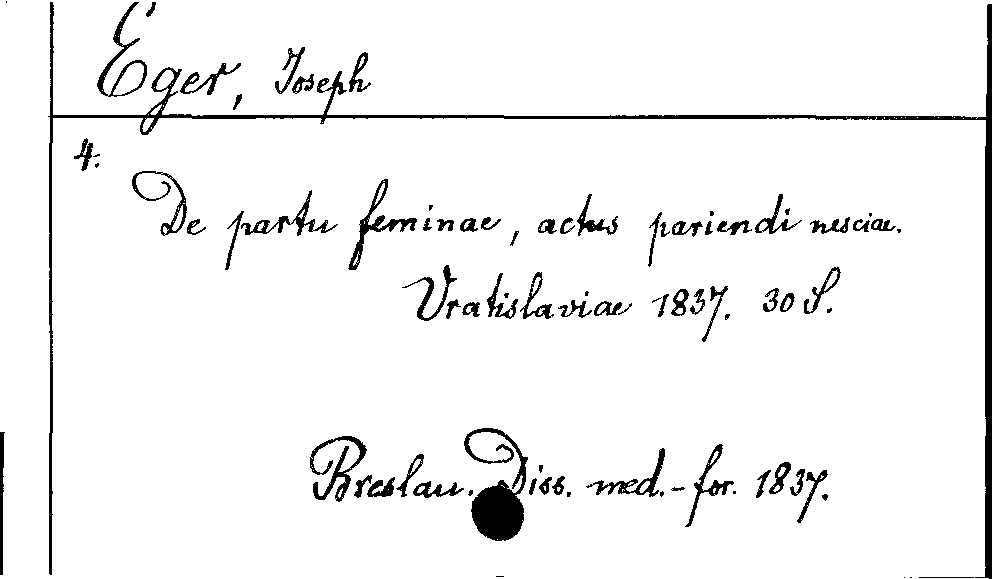 Eger, Joseph
4.
De partu feminae, actus pariendi nesciae.
Vratislaviae 1837. 30 S.
Breslau. Diss. med.-for. 1837.